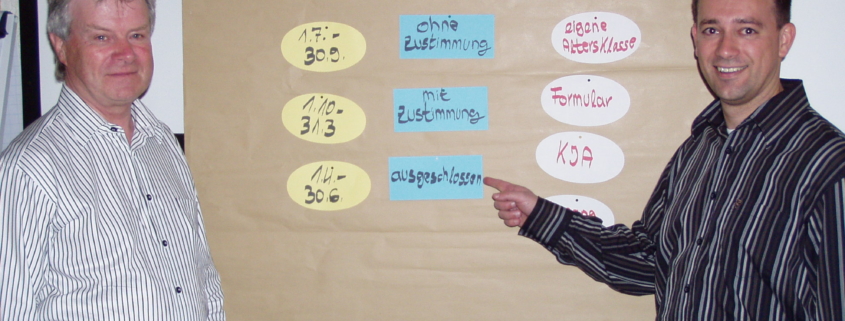 1.7.-
30.9.
ohne
Zustimmung
eigene
Altersklasse
1.10-
31.3
mit
Zustimmung
Formular
1.4.-
30.6.
ausgeschlossen
KJA